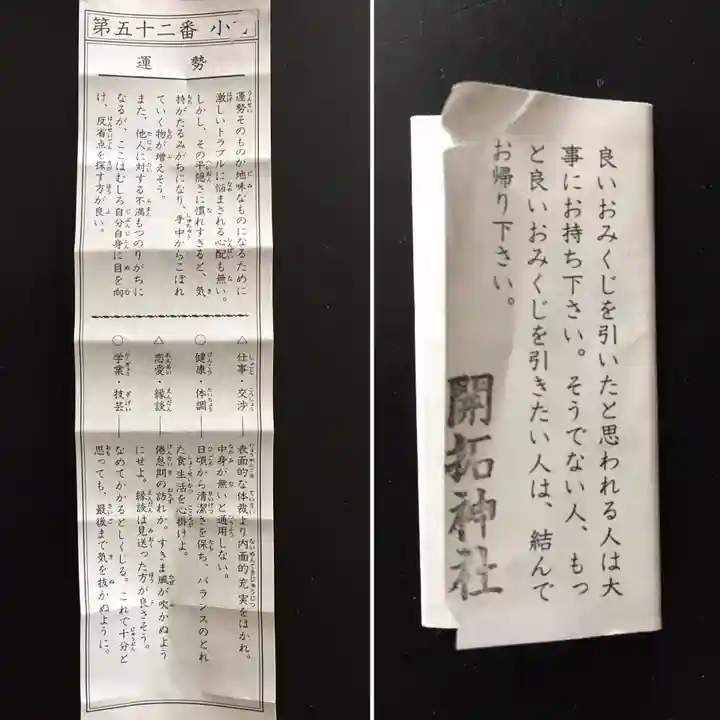 第五十二番 小
運勢
運勢そのものが地味なものになるために
激しいトラブルに悩まされる心配も無い。
しかし、その平穏さに慣れすぎると、気
持がたるみがちになり、手中からこぼれ
ていく物が増えそう。
また、他人に対する不満もつのりがちに
なるが、ここはむしろ自分自身に目を向
け、反省点を探す方が良い。
△ 仕事・交渉 — 表面的な体裁より内面的充実をはかれ。
中身が無いと通用しない。
○ 健康・体調 — 日頃から清潔さを保ち、バランスのとれ
た食生活を心掛けよ。
△ 恋愛・縁談 — 倦怠期の訪れか。すきま風が吹かぬよう
にせよ。縁談は見送った方が良さそう。
○ 学業・技芸 — なめてかかるとしくじる。これで十分と
思っても、最後まで気を抜かぬように。
良いおみくじを引いたと思われる人は大
事にお持ち下さい。そうでない人、もっ
と良いおみくじを引きたい人は、結んで
お帰り下さい。
開拓神社